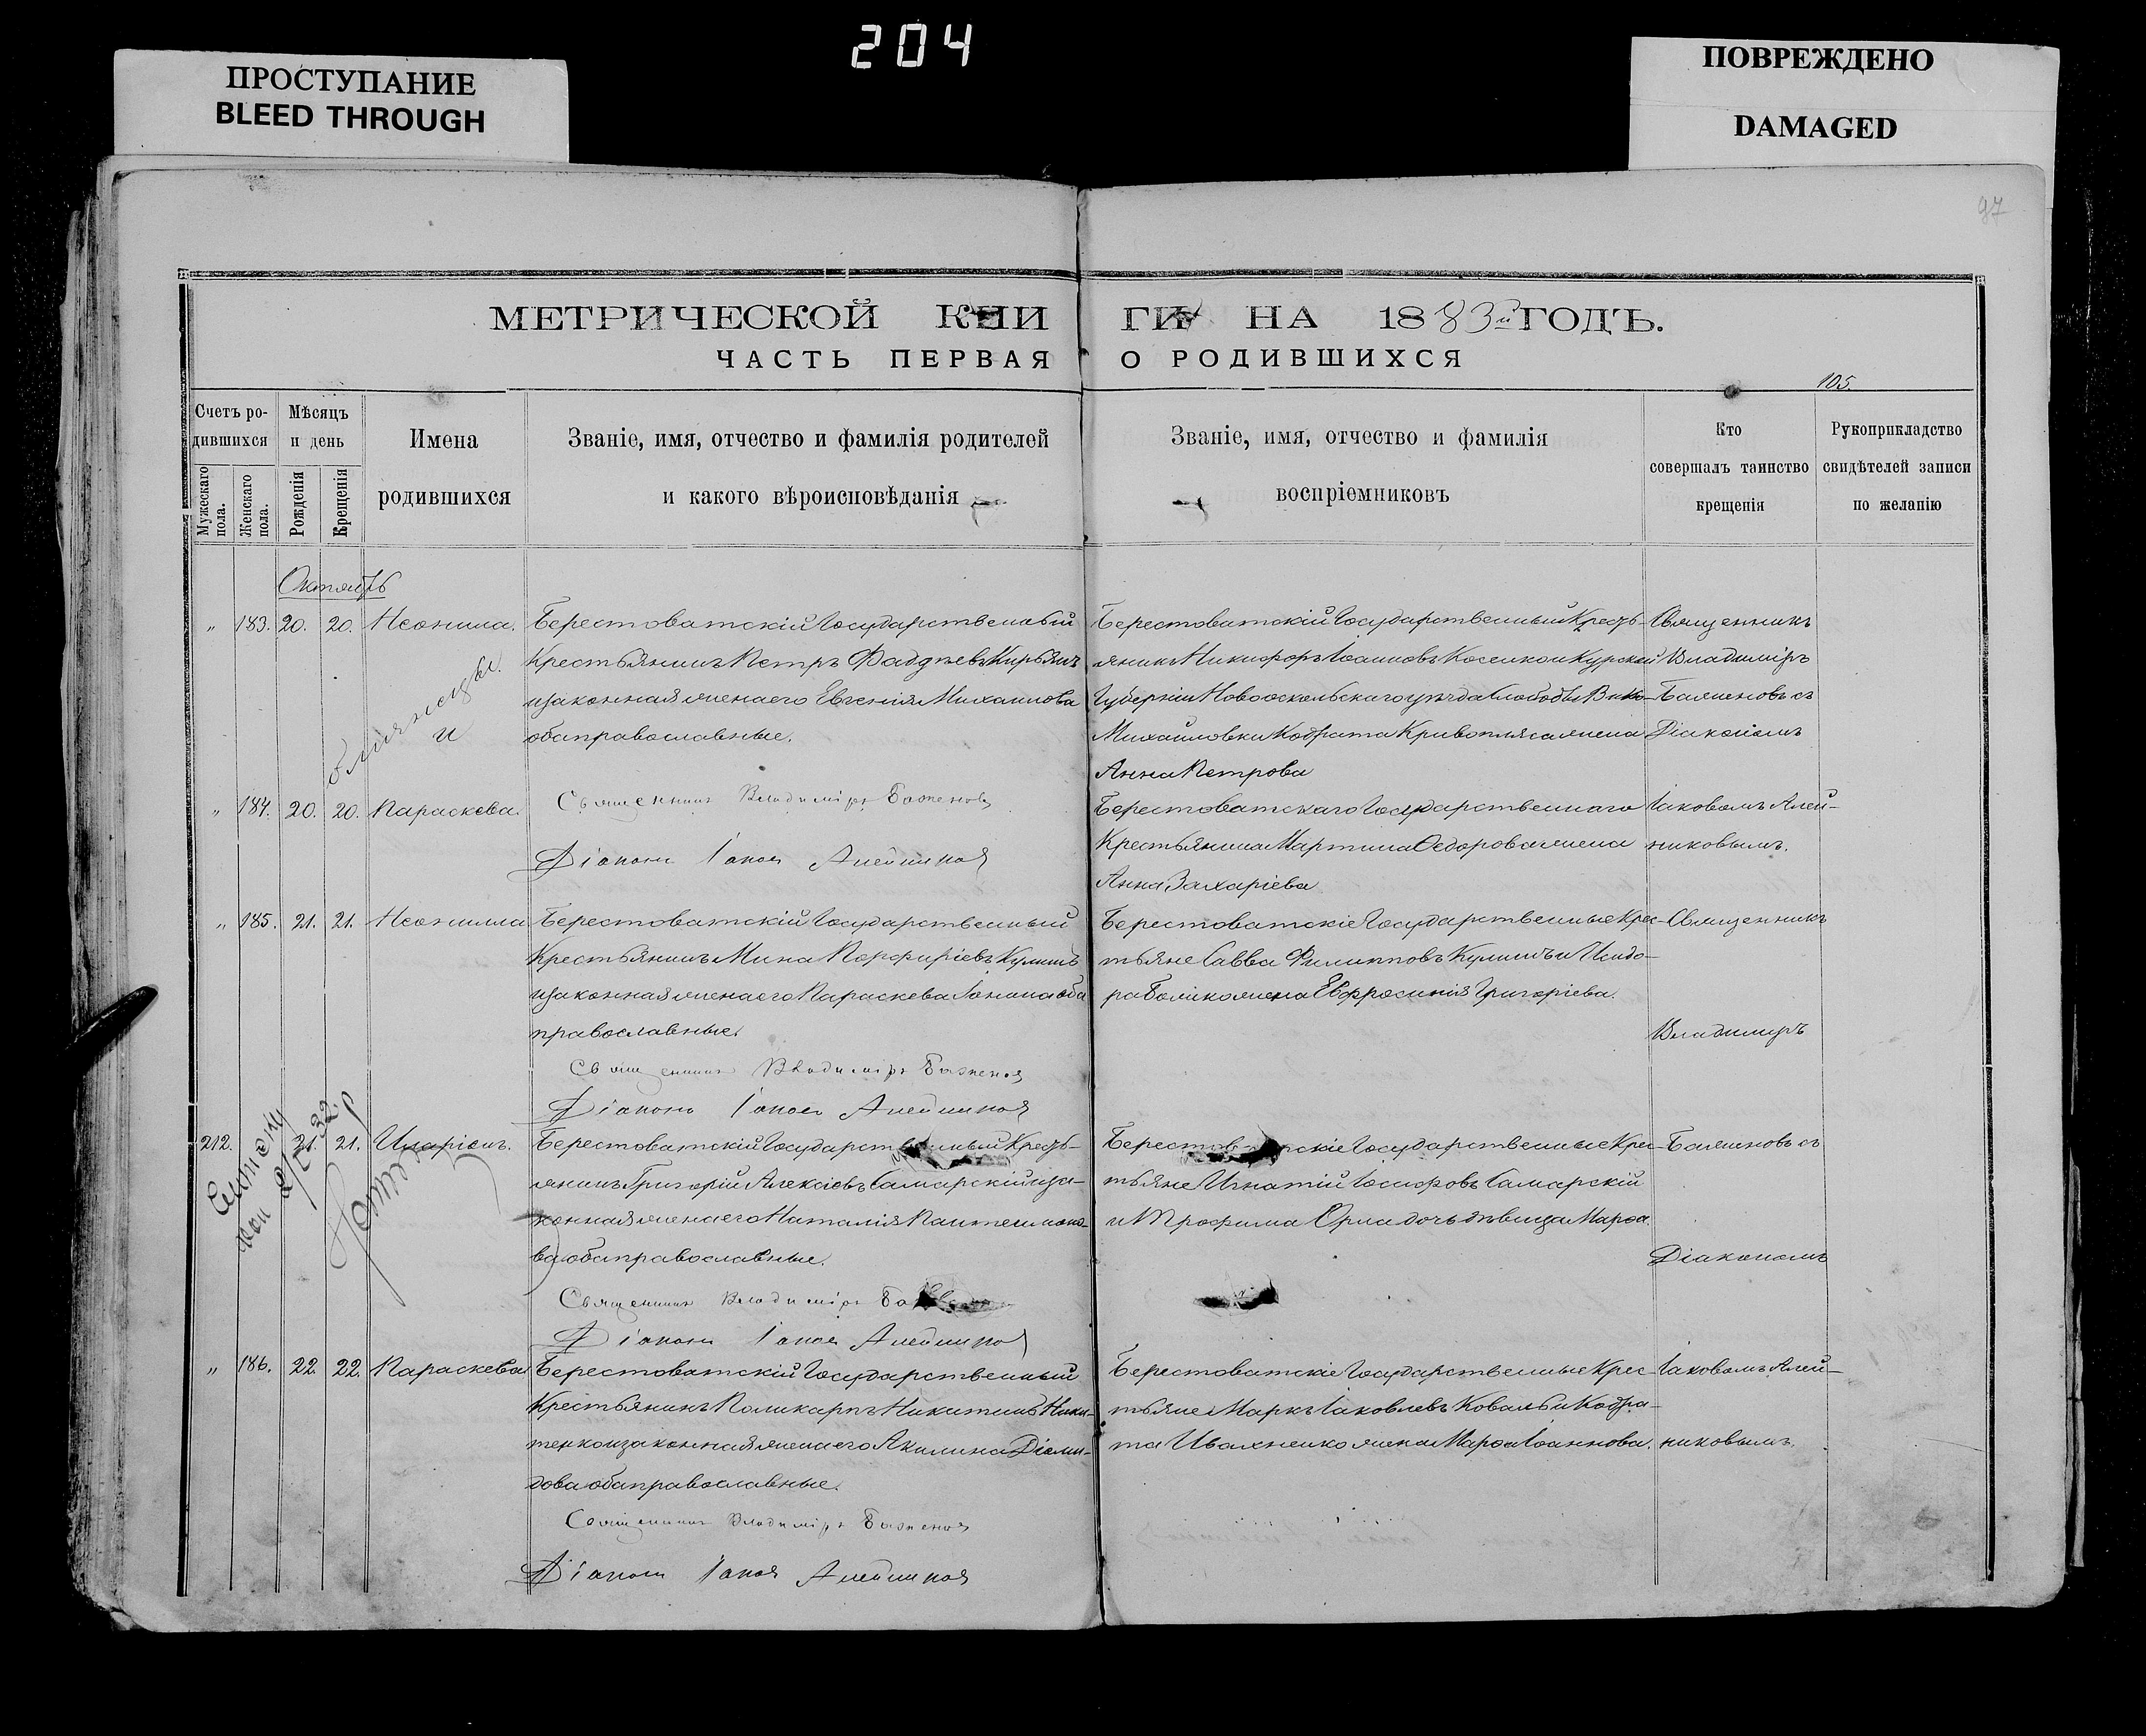 204
ПРОСТУПАНИЕ
BLEED THROUGH
ПОВРЕЖДЕНО
DAMAGED
97
МЕТРИЧЕСКОЙ КНИГИ НА 1883й ГОДЪ.
ЧАСТЬ ПЕРВАЯ О РОДИВШИХСЯ
105.
Счетъ ро-
дившихся
Мужескаго пола.
Женскаго пола.
Мѣсяцъ
и день
Рожденія
Крещенія
Имена
родившихся
Званіе, имя, отчество и фамилія родителей
и какого вѣроисповѣданія
Званіе, имя, отчество и фамилія
воспріемниковъ
Кто
совершалъ таинство
крещенія
Рукоприкладство
свидѣтелей записи
по желанію
Октябрь
" 183. 20. 20. Неонила.
близнецы.
и
Берестоватскій Государственный
Крестьянинъ Петръ Фаддѣевъ Кирьянъ
и законная жена его Евгенія Михаилова
оба православные.
Берестоватскій Государственный Кресть-
янинъ Никифоръ Іоанновъ Косенко и Курской
Губерніи Новооскольскаго уѣзда Слободы
Михайловки Кодрата Кривопляса жена
Анна Петрова
Священникъ
Владиміръ
Баженовъ съ
Діакономъ
" 184. 20. 20. Параскева.
Священникъ Владиміръ Баженовъ
Діаконъ Іаковъ Алейников
Берестоватскаго Государственнаго
Крестьянина Мартина Ѳедорова жена
Анна Захаріева
Іаковомъ Алей-
никовымъ.
" 185. 21. 21. Неонилла
Берестоватскій Государственный
Крестьянинъ Мина Порфиріевъ Кулишъ
и законная жена его Параскева Іонина оба
православные.
Священникъ Владиміръ Баженов
Діаконъ Іаковъ Алейников
Берестоватскіе Государственные Крес-
тьяне Савва Филипповъ Кулишъ и Исидо-
ра жена Евфросинія Григоріева.
Священникъ
Владимиръ
212. 21. 21. Иларіонъ.
Берестоватскій Государственный Кресть-
янинъ Григорій Алексіевъ Самарскій и за-
конная жена его Наталія Пантелимоно-
ва оба православные.
Священникъ Владиміръ
Діаконъ Іаковъ Алейников
Берестоватскіе Государственные Крес-
тьяне Игнатій Іосифовъ Самарскій
и Трофима Орла дочь дѣвица Марѳа.
Баженовъ съ
Діакономъ
" 186. 22. 22. Параскева
Берестоватскій Государственный
Крестьянинъ Поликарпъ Никитинъ Ники-
тенко и законная жена его Акилина Діоми-
дова оба православные.
Священникъ Владиміръ Баженов
Діаконъ Іаковъ Алейников
Берестоватскіе Государственные Крес-
тьяне Маркъ Іаковлевъ Коваль и Кодра-
та Ивахненко жена Марѳа Іоаннова.
Іаковомъ Алей-
никовымъ.